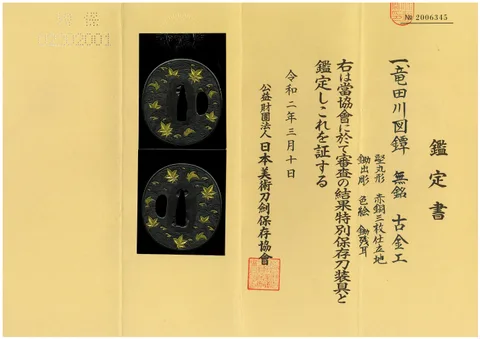 № 2006345
鑑定書
一、竜田川図鐔 無銘 古金工
竪丸形 赤銅三枚仕立地
鋤出彫 色絵 鋤残耳
右は當協會に於て審査の結果特別保存刀装具と
鑑定しこれを証する
令和二年三月十日
公益財團法人 日本美術刀劍保存協會